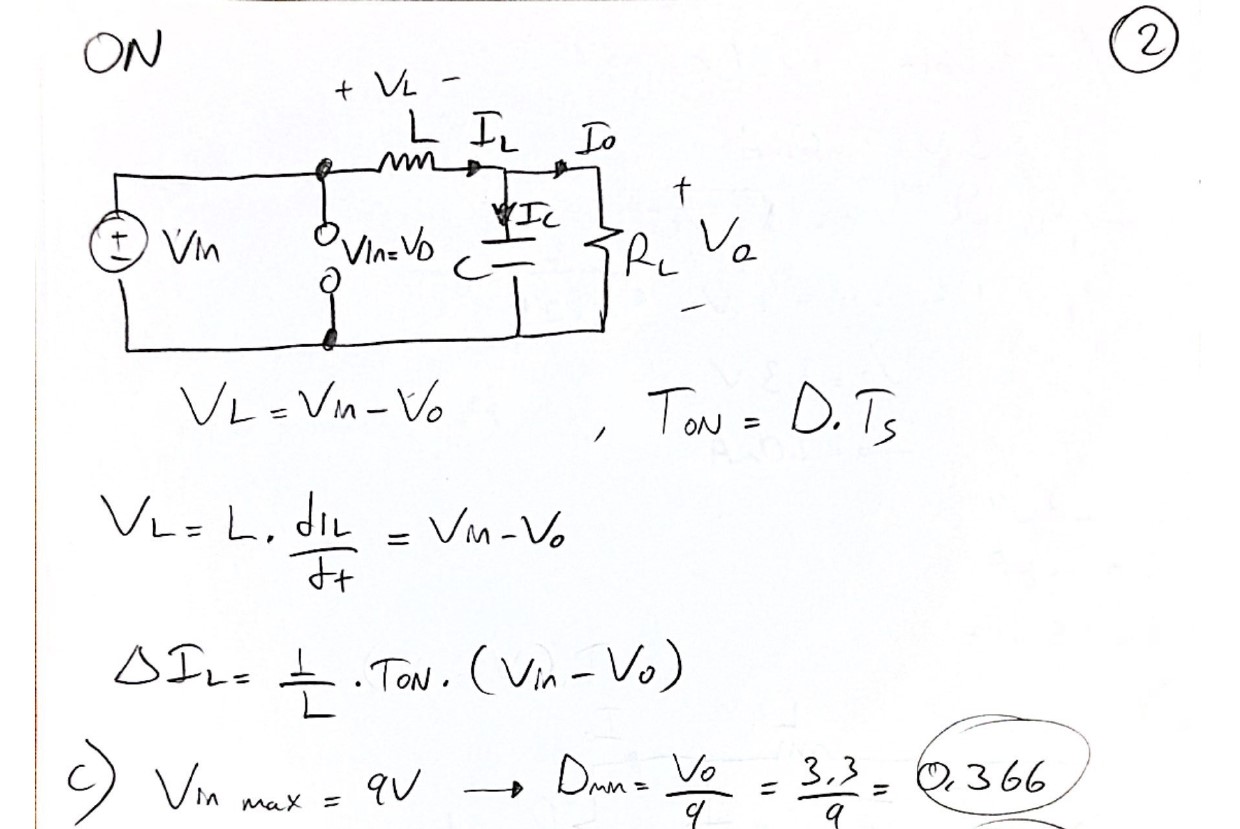 ON
2
+ VL -
L IL Io
+
Vin
Vin=VD
IC
C
RL
+
Vo
-
VL = Vin - Vo , TON = D.Ts
VL = L. dIL/dt = Vin - Vo
ΔIL = 1/L . TON. (Vin - Vo)
c) Vin max = 9V → Dmin = Vo/9 = 3.3/9 = 0.366